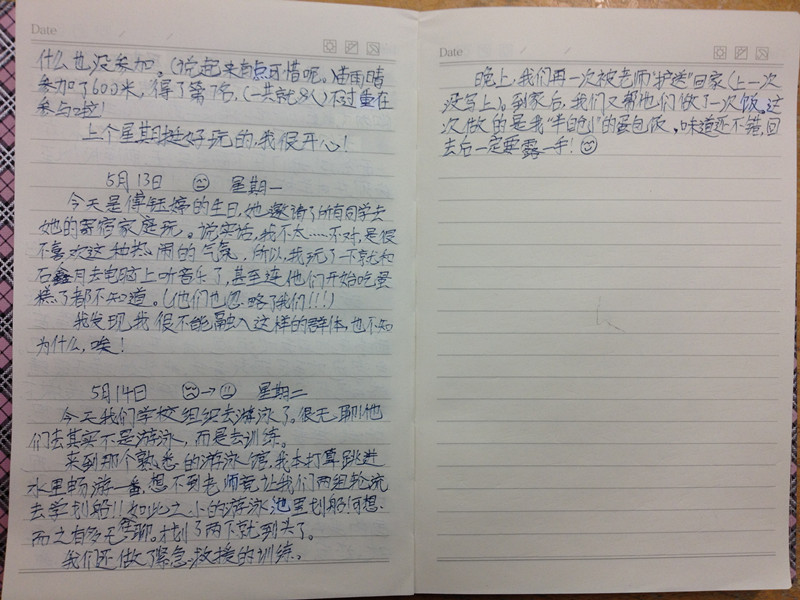 Date
什么也没参加。(说起来有点可惜呢。)苗雨晴
参加了600米,得了第7名,(一共就8人)不过重在
参与啦!
上个星期挺好玩的,我很开心!
5月13日 星期一
今天是傅钰婷的生日,她邀请了所有同学去
她的寄宿家庭玩。说实话,我不太……不对,是很
不喜欢这种热闹的气氛。所以,我玩了一下就和
石鑫月去电脑上听音乐了,甚至连他们开始吃蛋
糕了都不知道。(他们也忽略了我们!!!)
我发现我很不能融入这样的群体,也不知
为什么,唉!
5月14日 → 星期二
今天我们学校组织去游泳了。很无聊!他
们去其实不是游泳,而是去训练。
来到那个熟悉的游泳馆,我本打算跳进
水里畅游一番,想不到老师竟让我们两组轮流
去学划船!!如此之小的游泳池里划船!可想
而之有多无聊。才划了两下就到头了。
我们还做了紧急救援的训练。
Date
晚上,我们再一次被老师"护送"回家(上一次
没写上)。到家后,我们又帮他们做了一次饭。这
次做的是我"半自创"的蛋包饭。味道还不错,回
去后一定要露一手!